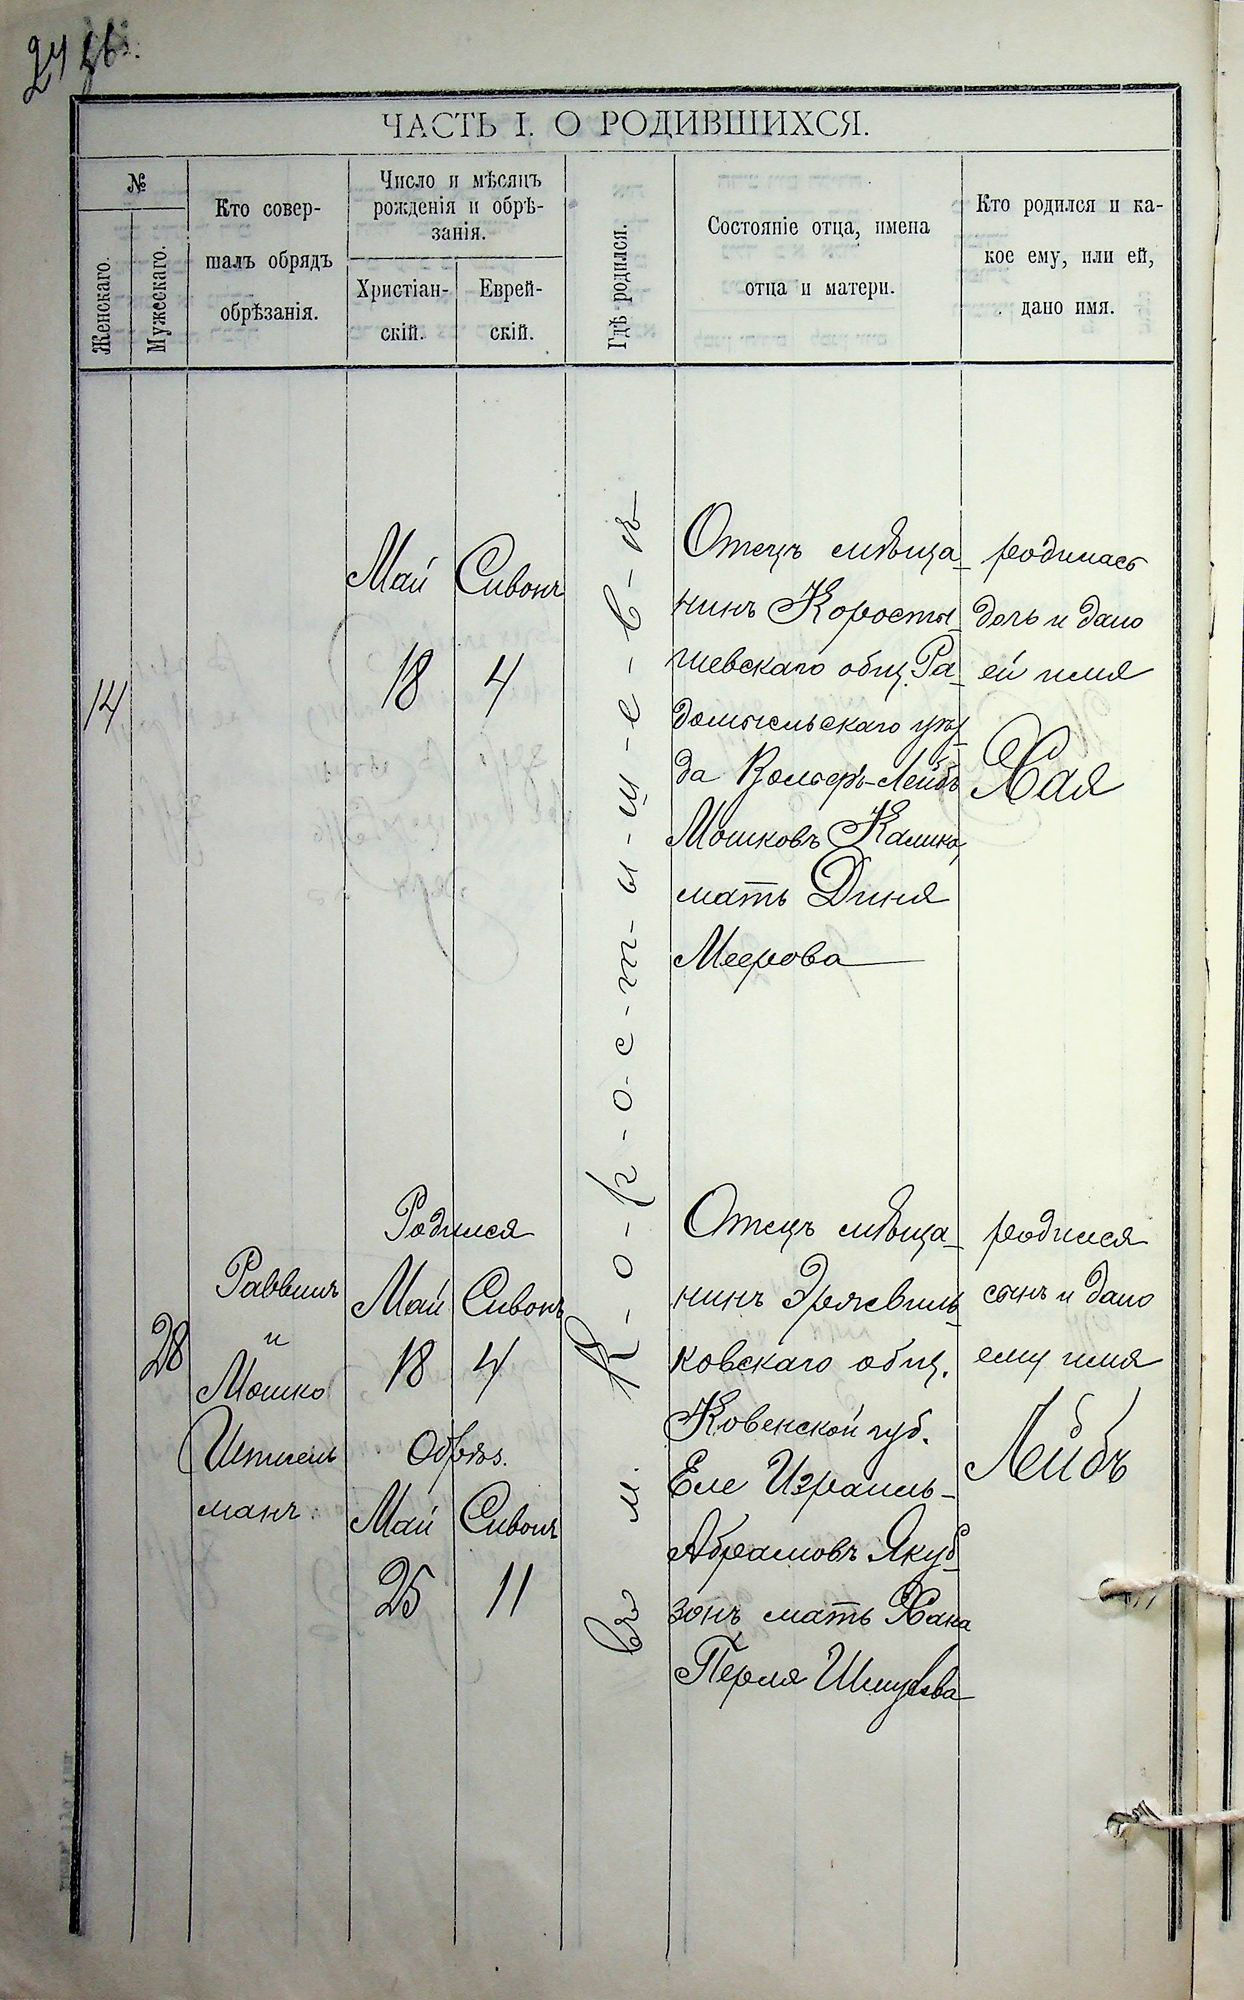 ЧАСТЬ I. О РОДИВШИХСЯ.
№
Женскаго.
Мужескаго.
Кто совер-
шалъ обрядъ
обрѣзанія.
Число и мѣсяцъ
рожденія и обрѣ-
занія.
Христіан-
скій.
Еврей-
скій.
Гдѣ родился.
Состояніе отца, имена
отца и матери.
Кто родился и ка-
кое ему, или ей,
дано имя.
14
Май
18
Сивонъ
4
въ м. К-о-р-о-с-т-ы-ш-е-в-ѣ
Отецъ мѣща-
нинъ Коросты-
шевскаго общ. Ра-
домысльскаго уѣз-
да Вольфъ-Лейбъ
Мошковъ Калика,
мать Диня
Меерова
родилась
дочь и дано
ей имя
Хая
28
Раввинъ
и
Мошко
манъ
Родился
Май
18
Сивонъ
4
Обрѣз.
Май
25
Сивонъ
11
Отецъ мѣща-
нинъ
ковскаго общ.
Ковенской губ.
Еле Израиль-
Абрамовъ Якуб-
зонъ мать Хана
Перля Шмулева
родился
сынъ и дано
ему имя
Лейбъ